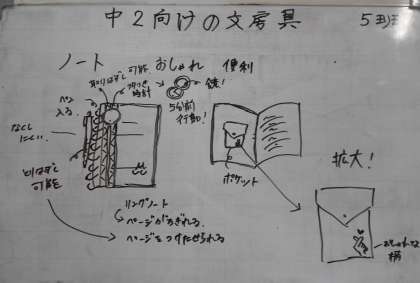 中2向けの文房具
5ヨリミ
ノート おしゃれ 便利
取りはずし可能
時計
鏡!
5分前
行動!
ペン
入る
なくし
にくい
とりはずし
可能
リングノート
ページがちぎれる
ページをつけたせられる
ポケット
拡大!
おしゃれな
柄